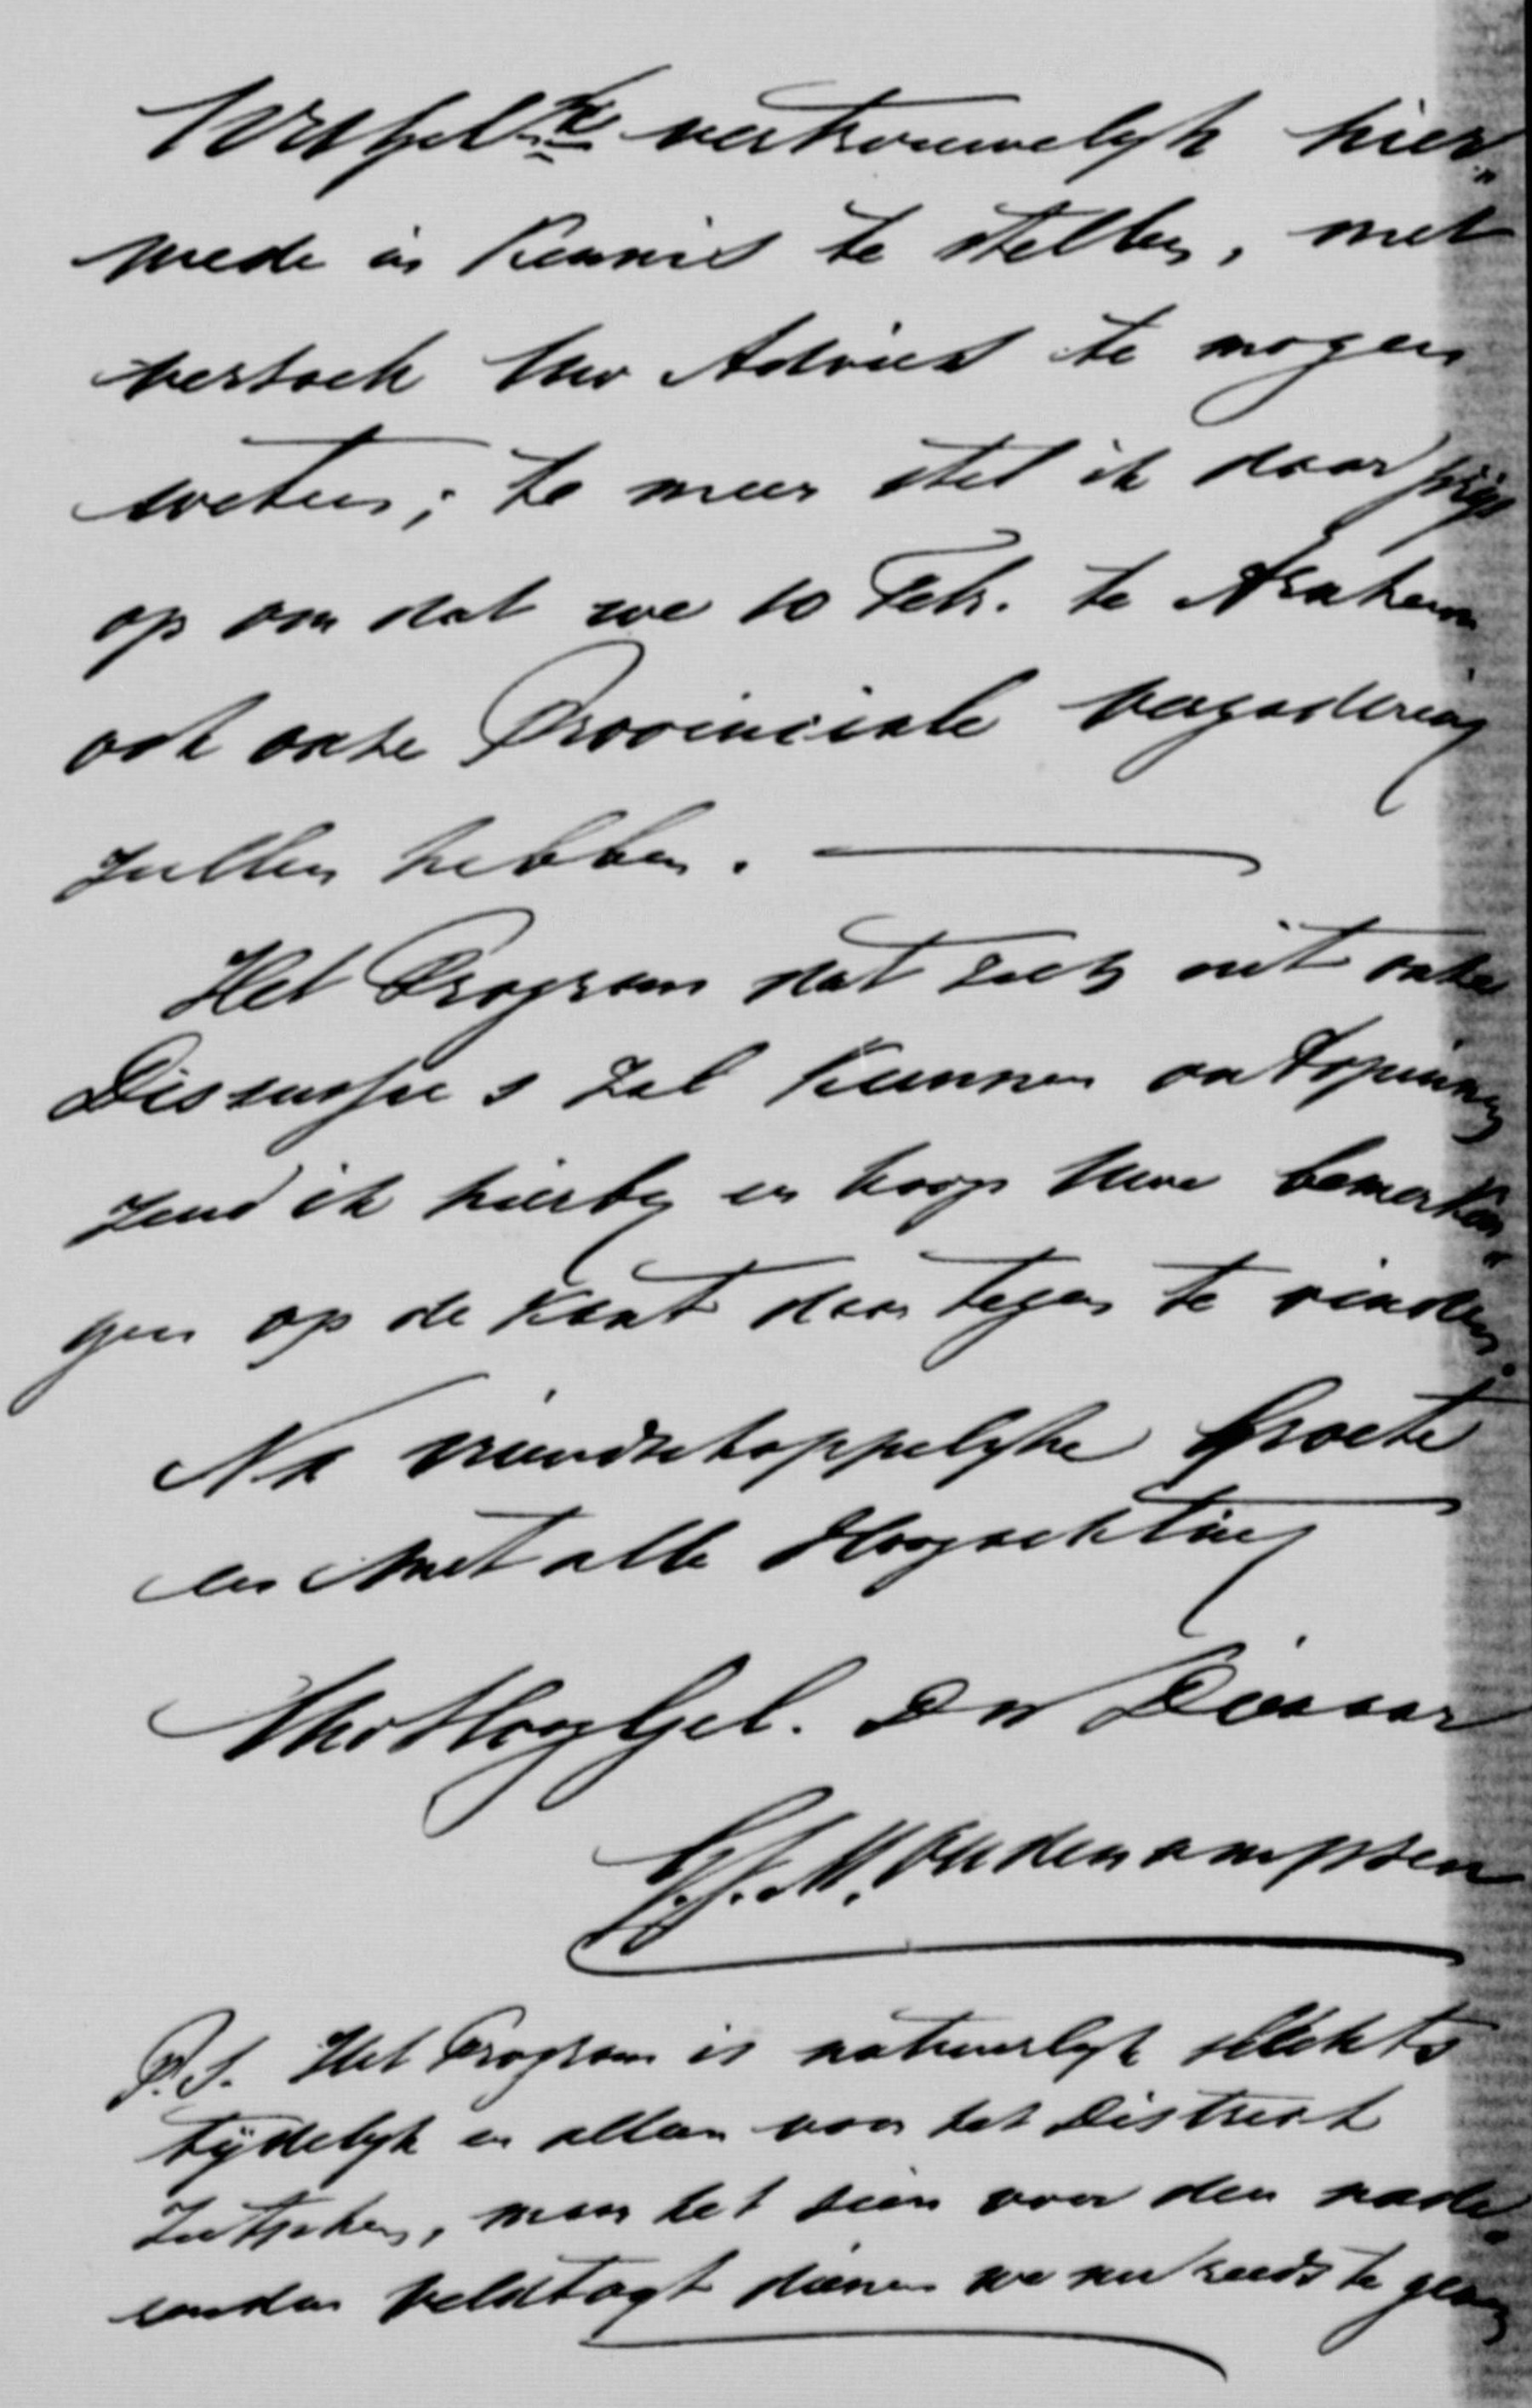 vertrouwelijk hier„
mede in kennis te stellen, met
verzoek Uw Advies te mogen
weten; te meer stel ik daar prijs
op om dat we 10 Febr. te Arnhem
ook onze Provinciale vergadering
zullen hebben. —
Het Program dat zich uit onze
Discussie's zal kunnen ontspinnen
zend ik hierby en hoop Uwe bemerkin„
gen op de kant daar tegen te vinden.
Na vriendschappelyke Groete
en met alle Hoogachting
UwHoogGel. Dw Dienaar
G.J.M. Oudenampsen
P.S. Het Program is natuurlyk slechts
tydelyk en alleen voor het District
Zutphen, maar het sein voor den nade„
renden veldtogt dienen we nu reeds te geven